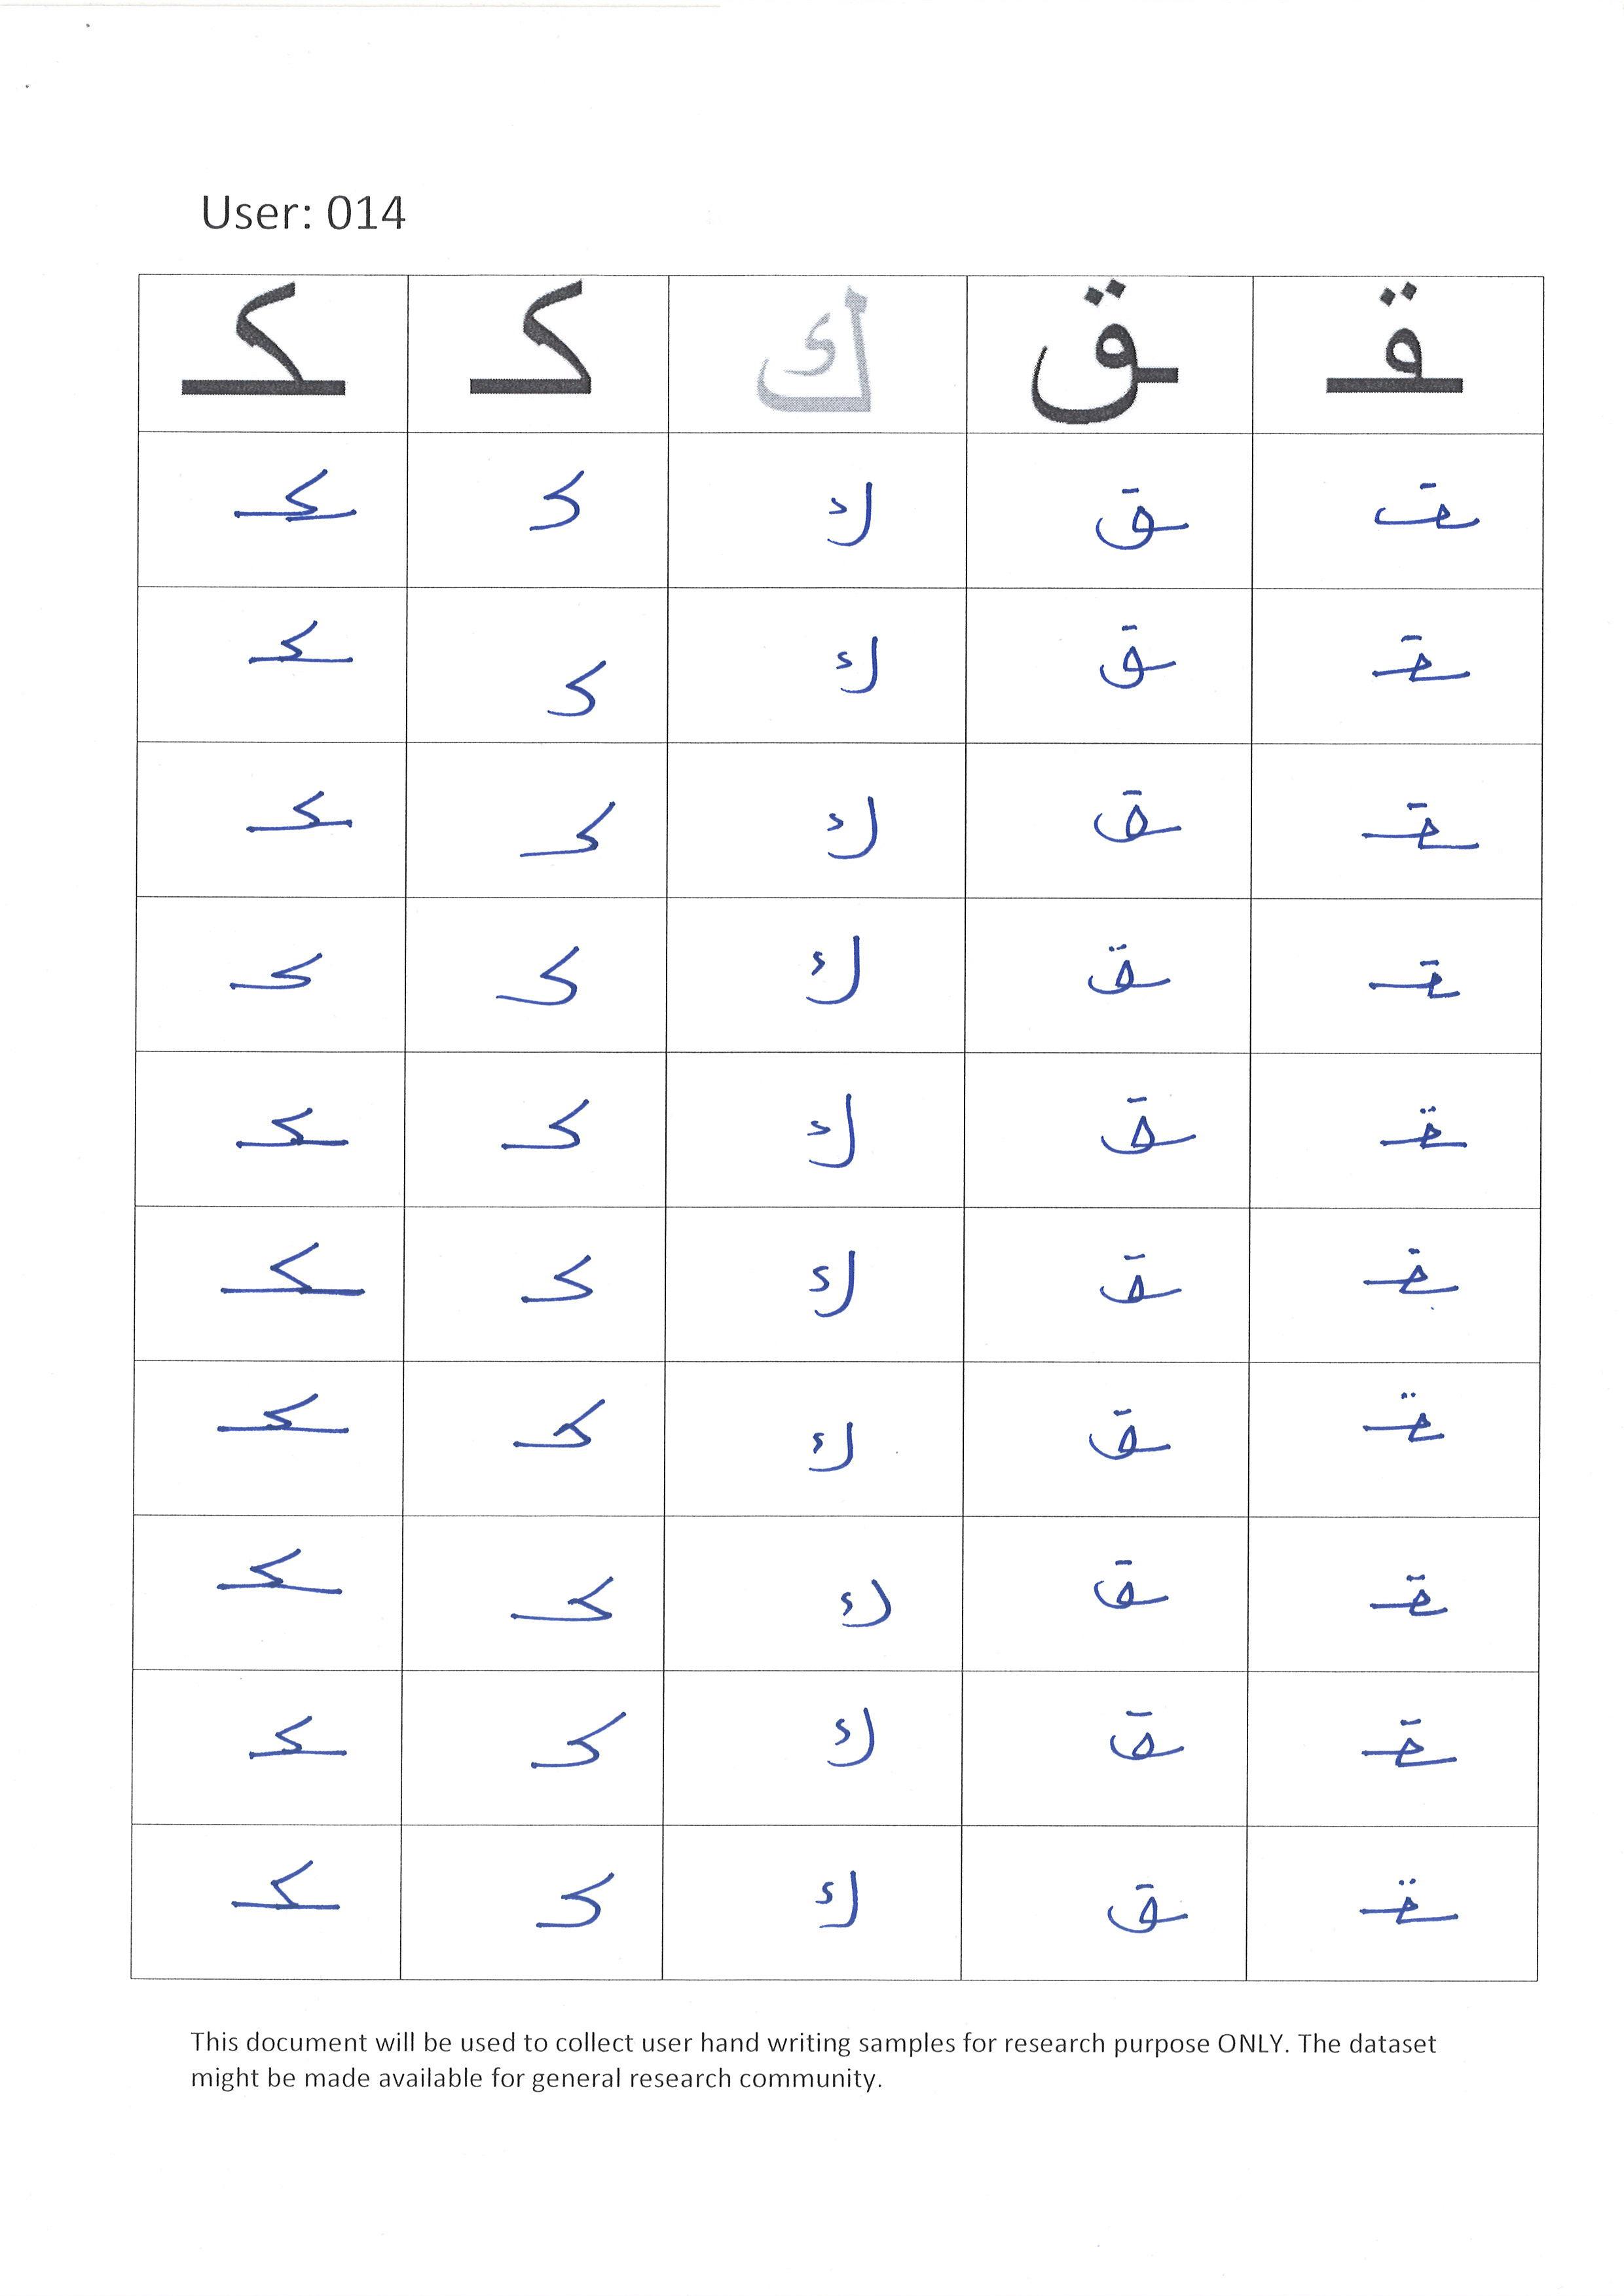 User: 014
ـقـ ـق ك كـ ـكـ
ـقـ ـق ك كـ ـكـ
ـقـ ـق ك كـ ـكـ
ـقـ ـق ك كـ ـكـ
ـقـ ـق ك كـ ـكـ
ـقـ ـق ك كـ ـكـ
ـقـ ـق ك كـ ـكـ
ـقـ ـق ك كـ ـكـ
ـقـ ـق ك كـ ـكـ
ـقـ ـق ك كـ ـكـ
ـقـ ـق ك كـ ـكـ
This document will be used to collect user hand writing samples for research purpose ONLY. The dataset
might be made available for general research community.